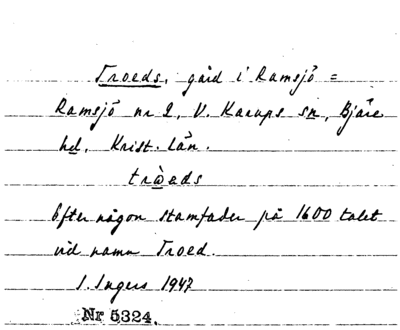 Troeds, gård i Ramsjö =
Ramsjö nr 2, V. Karups sn, Bjäre
hd, Krist. län.
tròeds
Efter någon stamfader på 1600 talet
vid namn Troed.
I. Ingers 1947
Nr 5324.